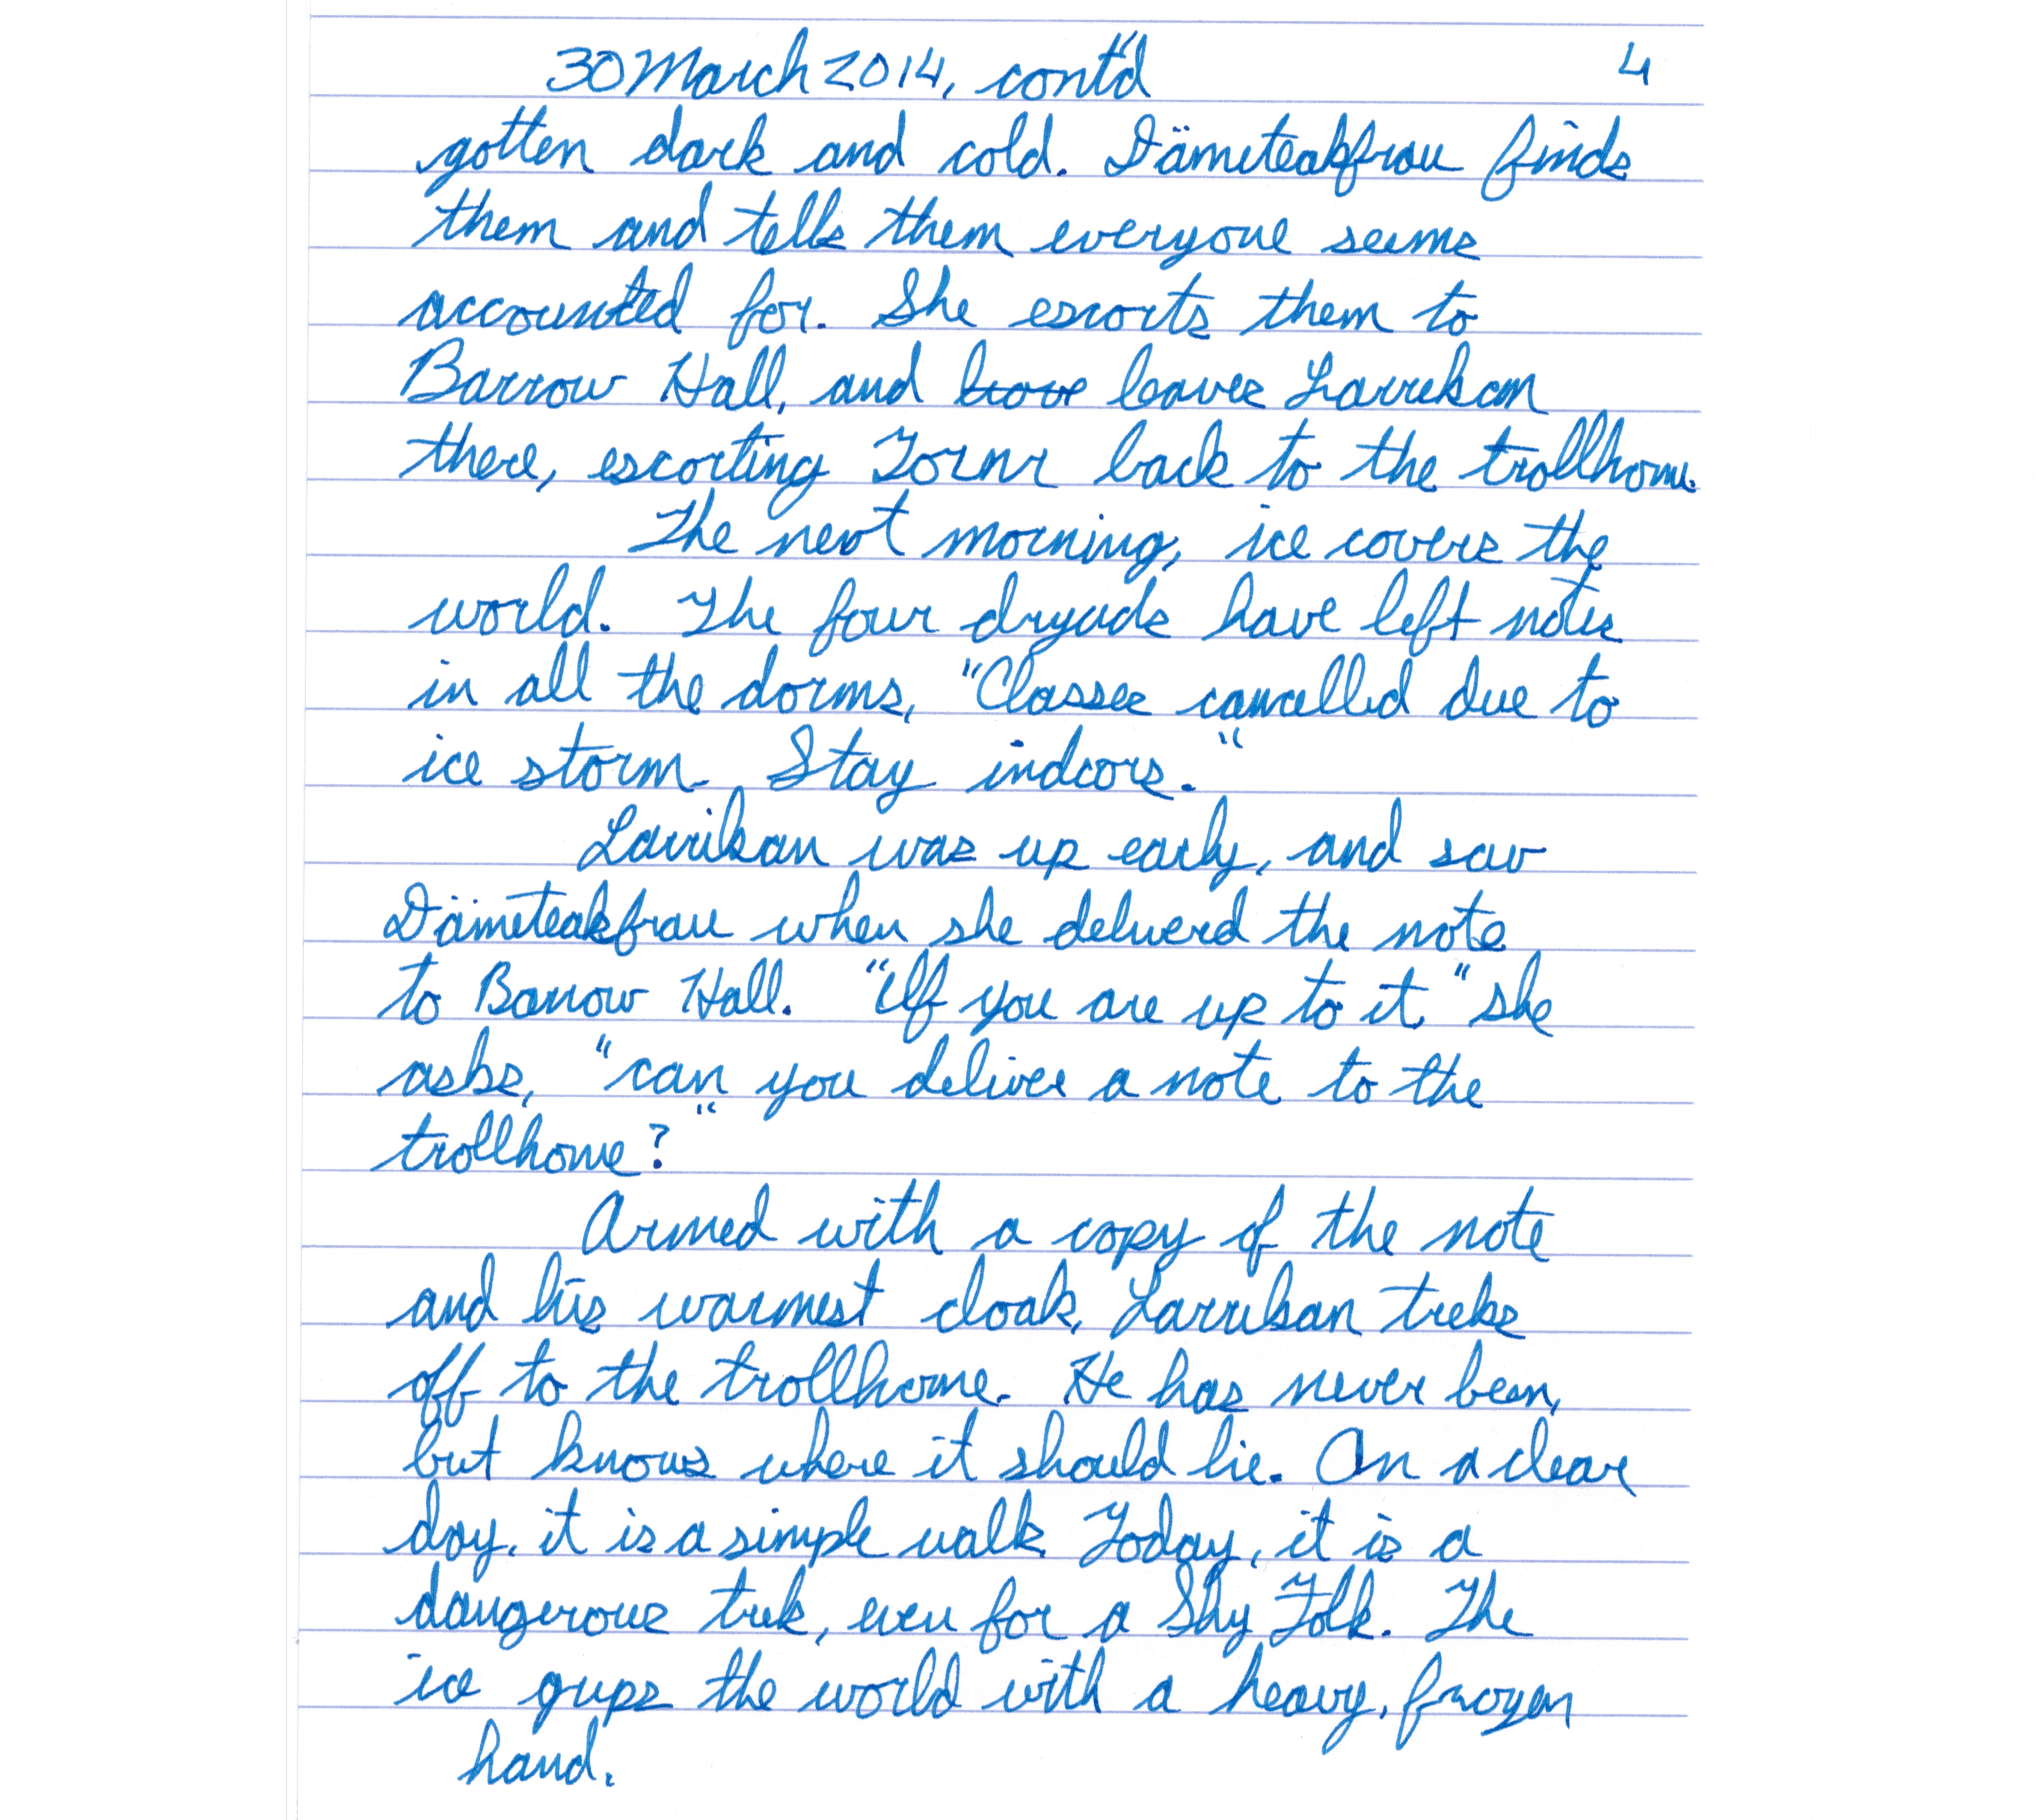 30 March 2014, cont'd 4
gotten dark and cold. Dämeteakfrau finds
them and tells them everyone seems
accounted for. She escorts them to
Barrow Hall, and leaves Larrikan
there, escorting Tornr back to the trollhome.
The next morning, ice covers the
world. The four dryads have left notes
in all the dorms, "Classes cancelled due to
ice storm. Stay indoors."
Larrikan was up early, and saw
Dämeteakfrau when she deliverd the note
to Barrow Hall. "If you are up to it" she
asks, "can you deliver a note to the
trollhome?"
Armed with a copy of the note
and his warmest cloak, Larrikan treks
off to the trollhome. He has never been,
but knows where it should lie. On a clear
day, it is a simple walk. Today, it is a
dangerous trek, even for a Shy Folk. The
ice grips the world with a heavy, frozen
hand.